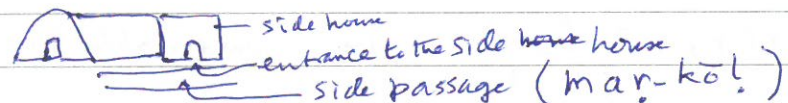 side house
entrance to the side house house
side passage (mar̤-kōl̤)